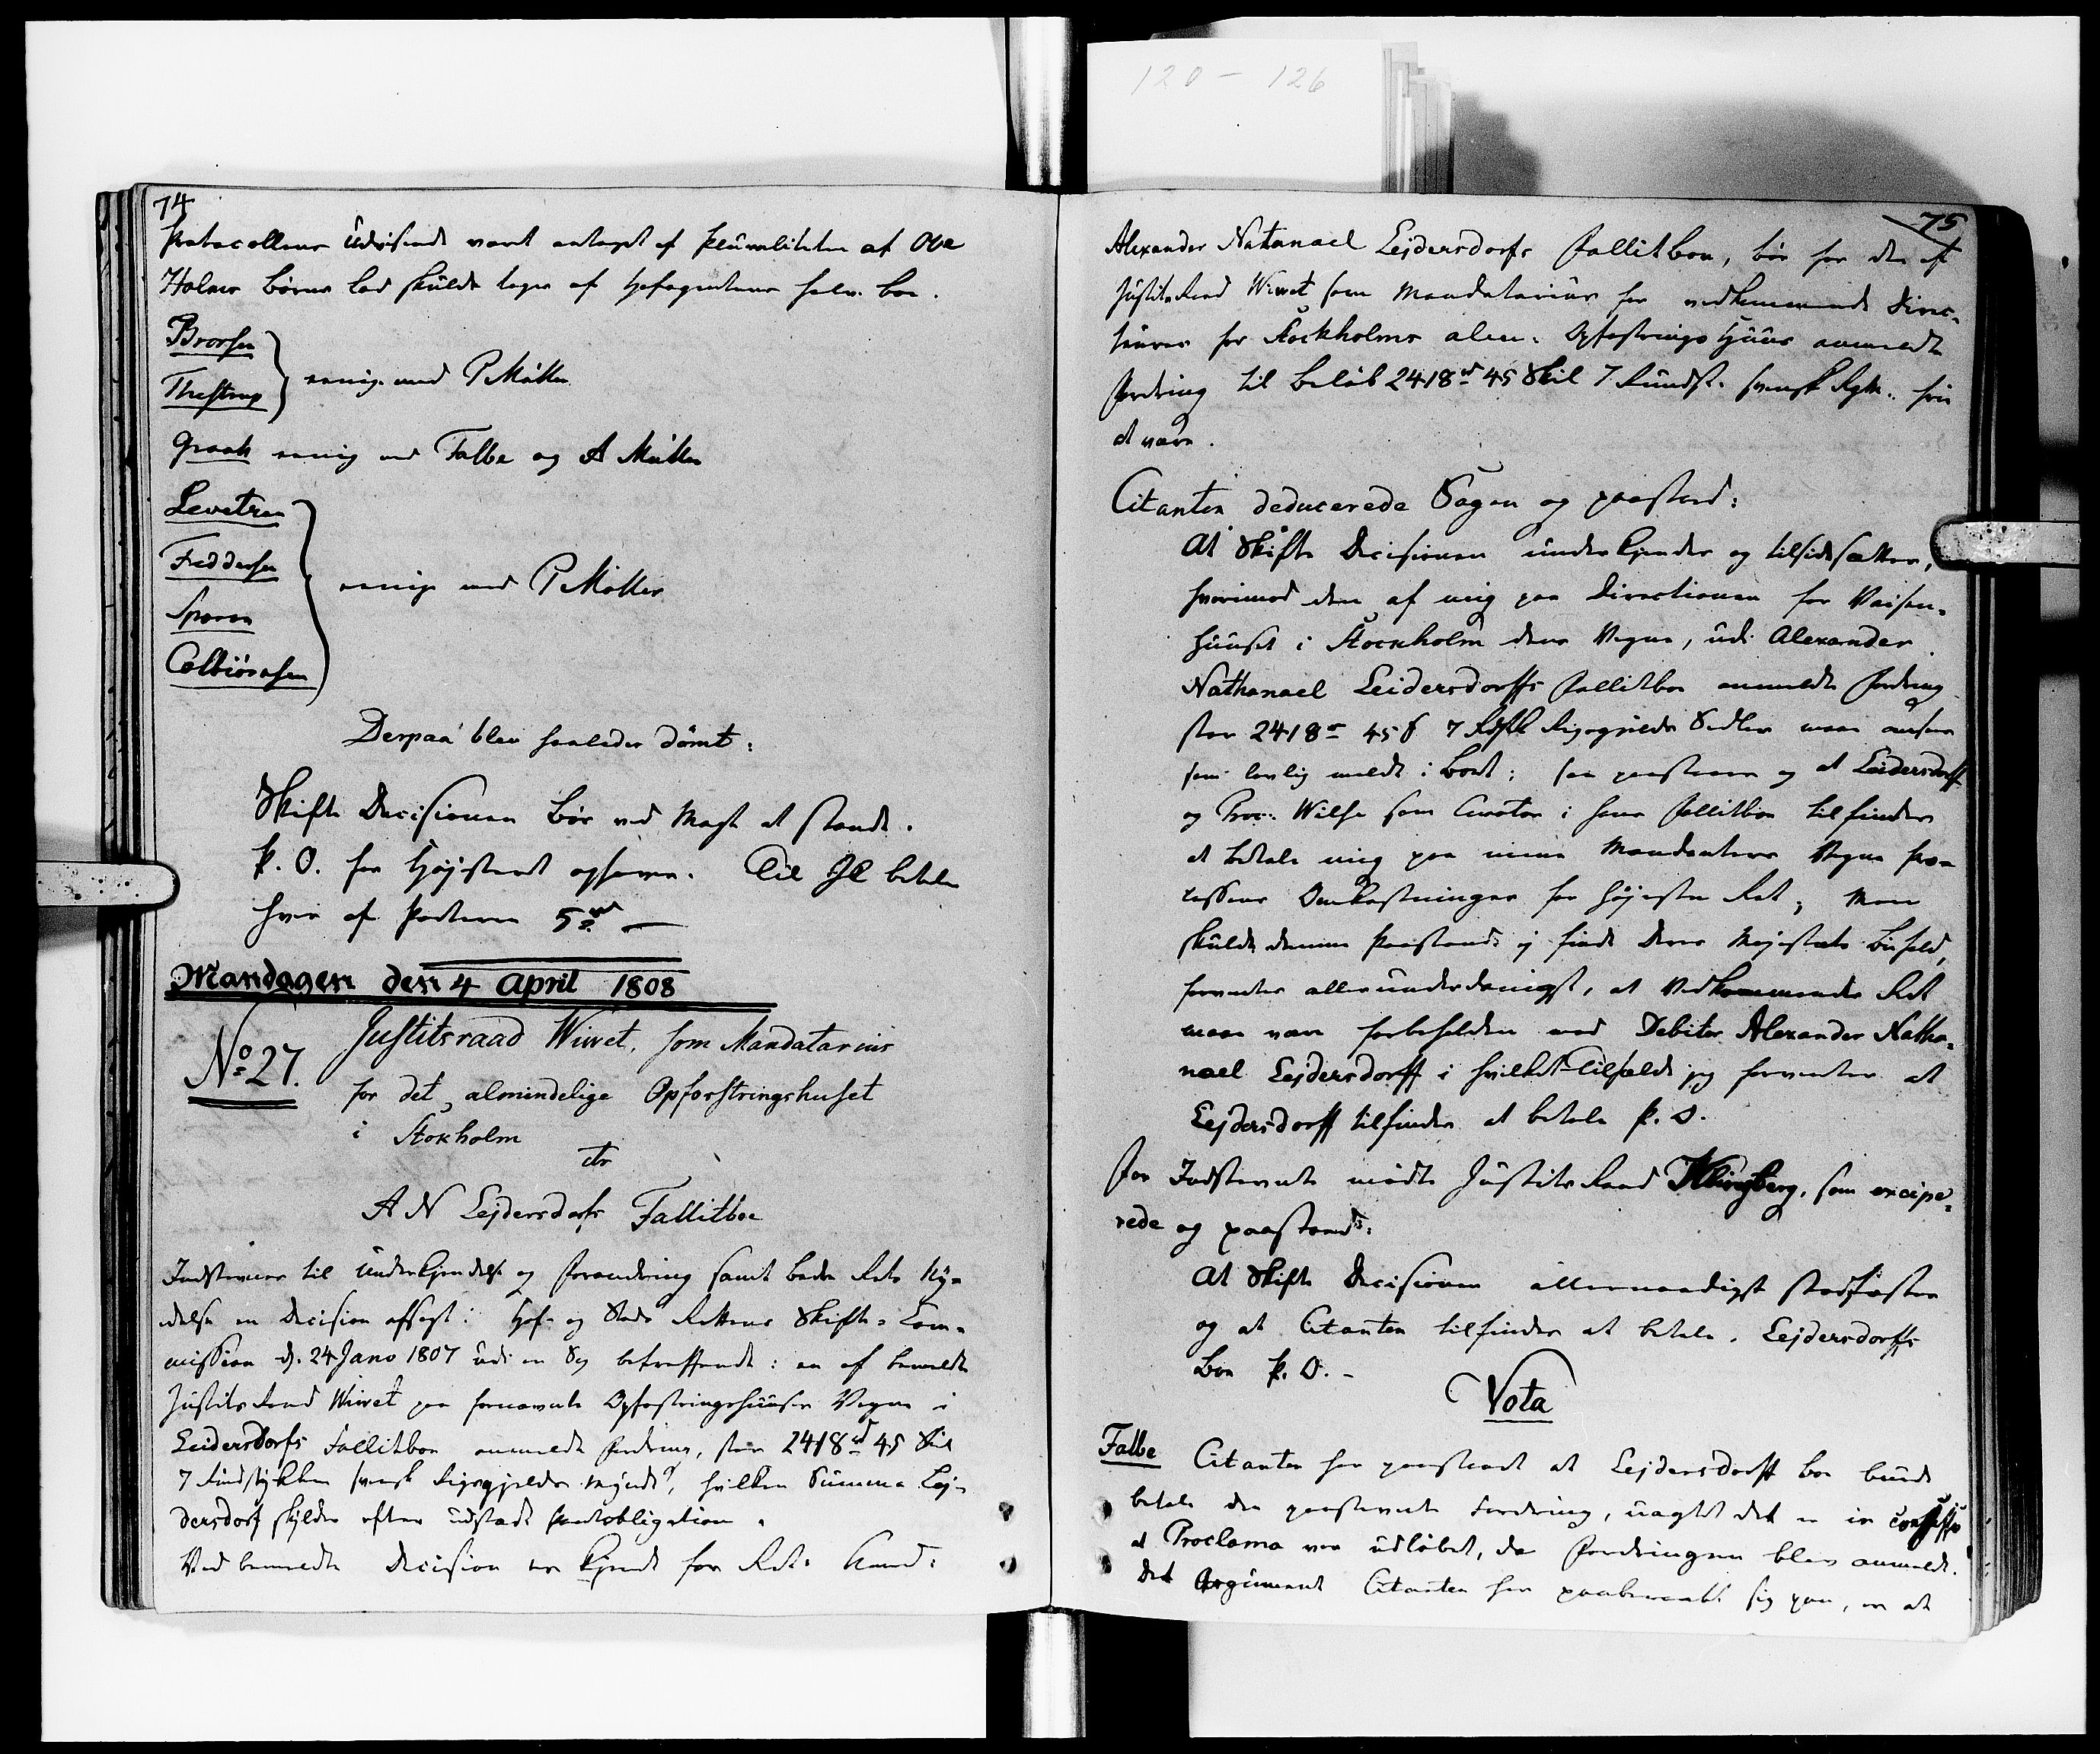 120 - 126
74
Protocollens Udvisende vært antaget af Pluraliteten at Ove
Holms Børns Lod skulde tages af Hofagentens halve Boe.
Brorsen
Thestrup
enige med P Møller
Graah enig med Falbe og A Møller
Levetzau
Feddersen
Sporon
Colbiørnsen
enige med P Møller
Derpaa blev saaledes dømt:
Skifte Decisionen bør ved Magt at stande.
P. O. for Højesteret ophæves. Til JC betaler
hver af Parterne 5 rd —
Mandagen den 4 April 1808
No 27.
Justitsraad Wivet, som Mandatarius
for det almindelige Opfostringshuset
i Stokholm
ctr
A N Lejdersdorfs Fallitboe
Indstævner til Underkjendelse og Forandring samt bedre Rets Ny-
delse en Decision afsagt i Hof- og Stads Rettens Skifte-Com-
mission d. 24 Janr 1807 udi en Sag betreffende: en af bemeldte
Justits Raad Wivet paa fornævnte Opfostringshuuses Vegne i
Leidersdorfs Fallitboe anmeldt Fordring, stor 2418 rd 45 Skil
7 Rundstykker svensk Rigsgjelds Mynt, hvilken Summa Lej-
dersdorf skylder efter udstædt Pantobligation.
Ved bemeldte Decision er kjendt for Ret: Anmd:
75
Alexander Natanael Lejdersdorfs Fallitboe, bør for den af
Justits Raad Wivet som Mandatarius for vedkommende Direc-
teurer for Stockholms alm: Opfostrings Huus anmeldte
Fordring til Beløb 2418 rd 45 Skil 7 Rundst. svensk Rgld. frie
at være.
Citanten deducerede Sagen og paastod:
At Skifte Decisionen underkjendes og tilsidesættes,
hvorimod den af mig paa Directionen for Vaisen-
huuset i Stockholm dens Vegne, udi Alexander
Nathanael Leidersdorffs Fallitboe anmeldte Fordring
stor 2418 rd 45 s 7 Rdstk Rigsgjelds Sedler maa ansees
som lovlig meldt i Boet; saa paastaaes og at Leidersdorff
og Proc: Wilse som Curator i hans Fallitboe tilfindes
at betale mig paa mine Mandanters Vegne Pro-
cessens Omkostninger for Højeste Ret; Men
skulde denne Paastand ej finde Deres Majestæts Bifald,
forventes allerunderdanigst, at Vedkommendes Ret
maa være forbeholden mod Debitor Alexander Natha-
nael Lejdersdorff i hvilket Tilfælde jeg forventer at
Lejdersdorff tilfindes at betale P. O.
For Indstævnte mødte Justits Raad Klingberg, som excipe-
rede og paastod:
At Skifte Decisionen allernaadigst stadfæstes
og at Citanten tilfindes at betale Lejdersdorffs
Boe P. O. -
Vota
Falbe Citanten har paastaaet at Lejdersdorff Boe burde
betale den paastævnte Fordring, uagtet det er in confesso
at Proclama var udløbet, da Fordringen blev anmeldt.
Det Argument Citanten har paaberaabt sig paa, er at